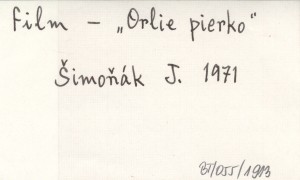 Film - „Orlie pierko"
Šimoňák J. 1971
BT/055/1913